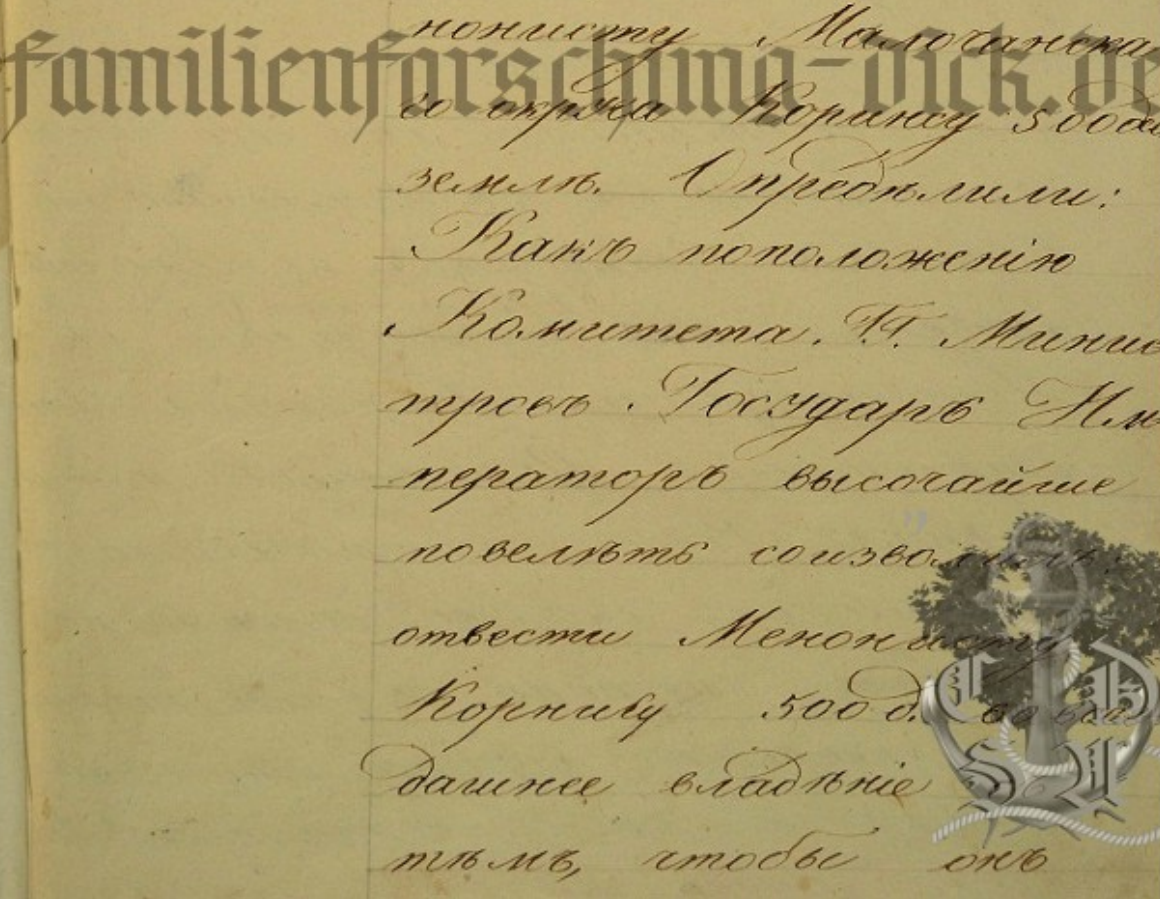 familienforschung-dick.de
нонисту Малочанска
го округа Корнису 500 де
землѣ. Опредѣлили:
Какъ поположенію
Комитета. Г.Г. Минис
тровъ. Государь Им
ператоръ высочайше
повелѣть соизволилъ:
отвести Менонисту
Корнису 500 д. во все
дашнее владѣніе
тѣмъ, чтобы онъ